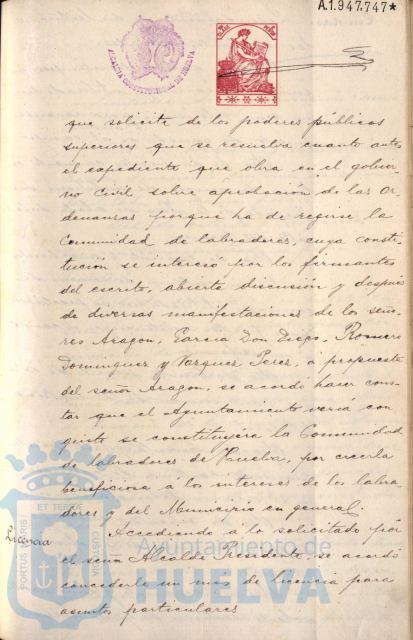 A.1.947.747*
ALCALDIA CONSTITUCIONAL DE HUELVA
que solicite de los poderes públicos
superiores que se resuelva cuanto antes
el expediente que obra en el gobier-
no Civil sobre aprobación de las Or-
denanzas porque ha de regirse la
Comunidad de labradores, cuya consti-
tución se interesó por los firmantes
del escrito, abierta discusión y despues
de diversas manifestaciones de los seño-
res Aragon, Garcia Don Diego, Romero
Dominguez y Vazquez Perez, a propuesta
del señor Aragon, se acordó hacer cons-
tar que el Ayuntamiento vería con
gusto se constituyere la Comunidad
de labradores de Huelva, por creerla
beneficiosa á los intereses de los labra-
dores y del Municipio en general.
Licencia
Accediendo á lo solicitado por
el señor Alcalde Presidente, se acordó
concederle un mes de licencia para
asuntos particulares
PORTUS MARIS
ET TERRAE
CUSTODIA
Ayuntamiento de
HUELVA